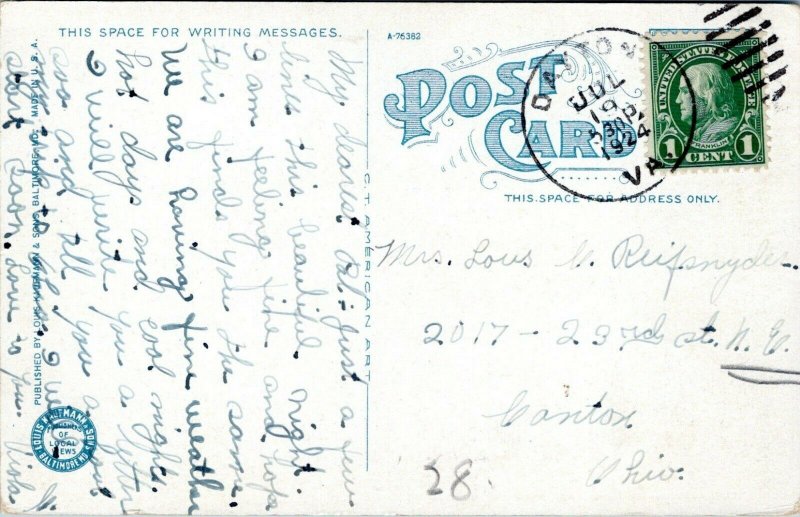 THIS SPACE FOR WRITING MESSAGES.
A-76382
POST
CARD
THIS SPACE FOR ADDRESS ONLY.
JUL
19
1924
VA
UNITED STATES POSTAGE
FRANKLIN
1 CENT 1
My dearest Just a few
lines this beautiful night.
I am feeling fine and hope
this finds you the same.
We are having fine weather
hot days and cool nights.
I will write you a letter
and tell you
Love to you.
Mrs. Lous V. Reifsnyder
2017 - 23rd st. N.E.
Canton
Ohio.
28.
C. T. AMERICAN ART
PUBLISHED BY LOUIS KAUFMANN & SONS, BALTIMORE, MD. MADE IN U.S.A.
LOUIS KAUFMANN & SONS
OF
LOCAL
VIEWS
BALTIMORE MD.